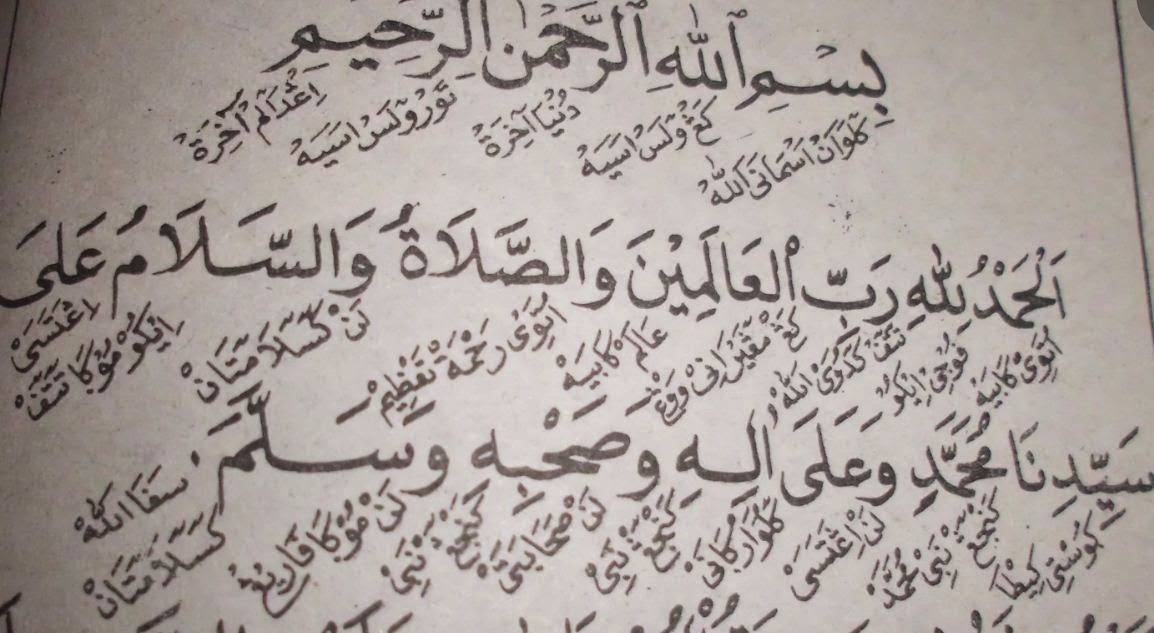 بِسْمِ اللهِ الرَّحْمٰنِ الرَّحِيْمِ
كَلَوَانْ اَسْمَانَى اللهْ كَڠْ وَلَسْ اَسِيَهْ دُنْيَا آخِرَةْ تُوْر وَلَسْ اَسِيَهْ اِڠْدَالَمْ آخِرَةْ
اَلْحَمْدُ لِلّٰهِ رَبِّ الْعَالَمِيْنَ وَالصَّلَاةُ وَالسَّلَامُ عَلَى
اُتَوِيْ كَابَيَهْ فُوْجِيْ اِيْكُوْ تَتَفْ كَدُوَيْ اللهْ كَڠْ مَڠَيْرَانِيْ عَالَمْ كَابَيَهْ اُتَوِيْ رَحْمَةْ تَعْظِيْمْ لَنْ كَسَلَامَتَانْ اِيْكُوْ مُوْكَا تَتَفْ اِڠْتَسَيْ
سَيِّدِنَا مُحَمَّدٍ وَعَلَى اٰلِهِ وَصَحْبِهِ وَسَلَّمَ.
كُوْسْتِيْ كِيْطَا كَنْجَڠْ نَبِيْ مُحَمَّدْ لَنْ اِڠْتَسَيْ كَلُوَارْكَانَيْ كَنْجَڠْ نَبِيْ لَنْ صَحَابَتَيْ كَنْجَڠْ نَبِيْ لَنْ مُوْكَا فَارِيْڠْ كَسَلَامَتَانْ سَفَا اللهْ